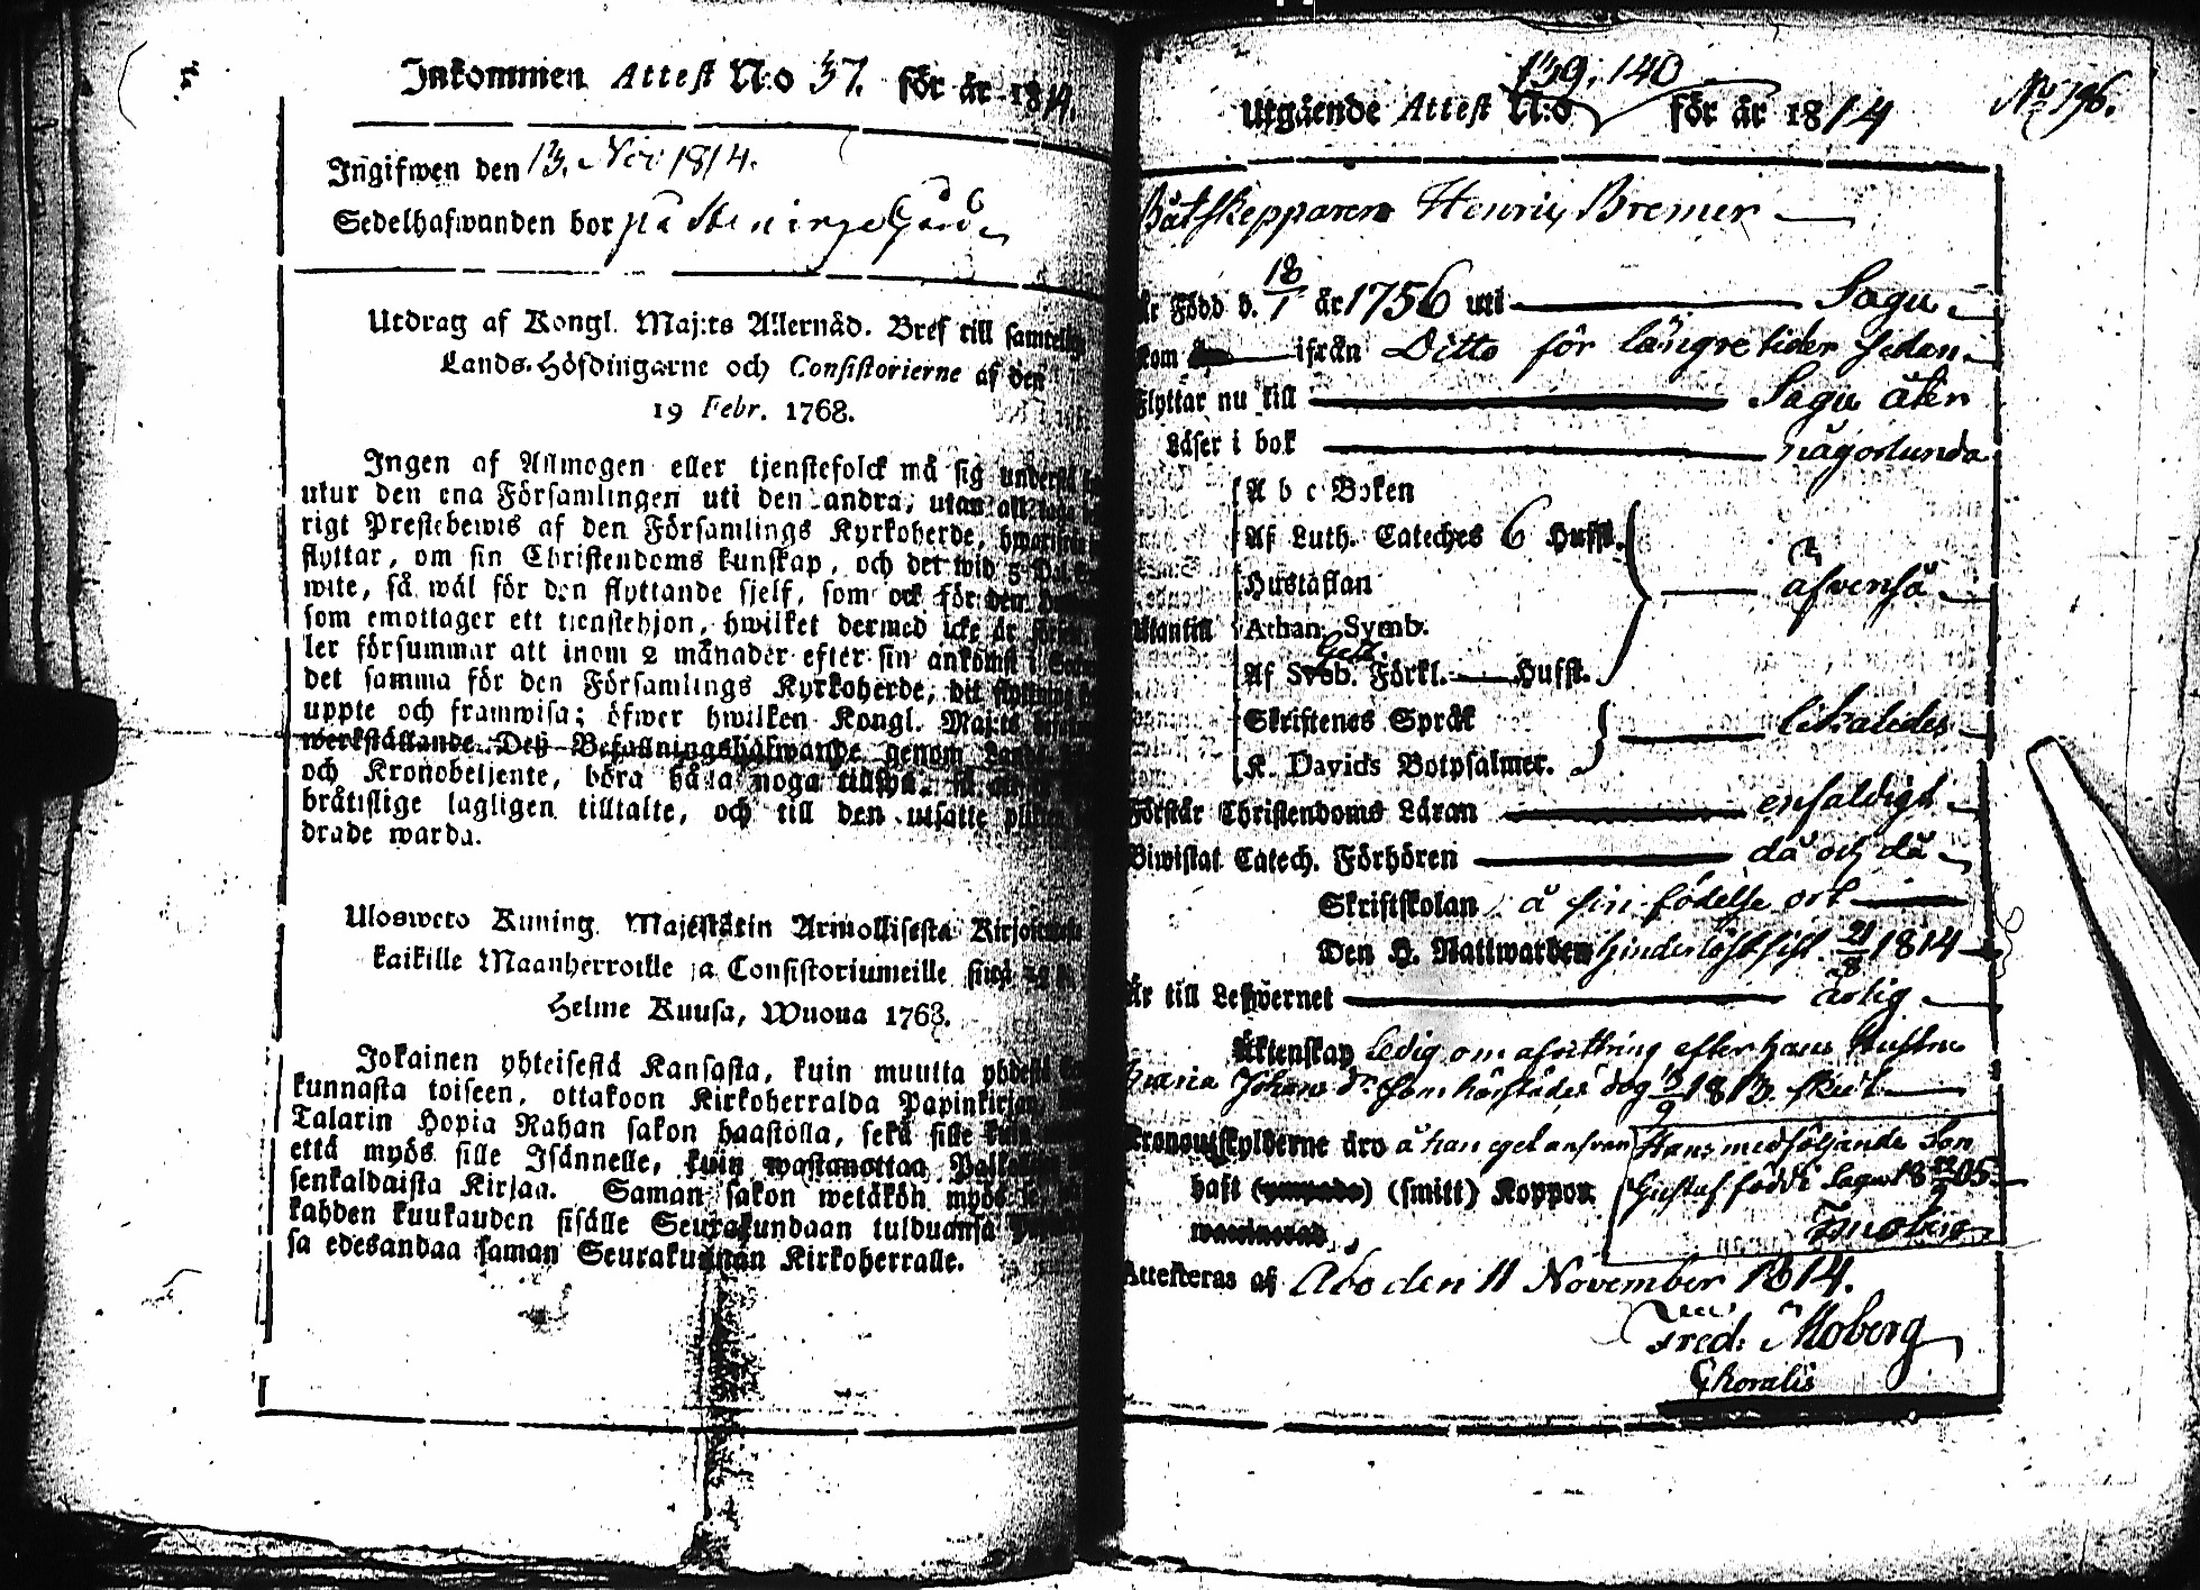 Inkommen Attest N:o 37. för år 1814.
Ingifwen den 13. Nov 1814.
Sedelhafwanden bor på
Utdrag af Kongl. Maj:ts Allernåd. Bref till samtelige
Lands-Höfdingarne och Consistorierne af den
19 Febr. 1768.
Ingen af Allmogen eller tjenstefolck må sig understå
utur den ena Församlingen uti den andra, utan
rigt Prestebewis af den Församlings Kyrkoherde,
flyttar, om sin Christendoms kunskap, och det wid 5
wite, så wäl för den flyttande sjelf, som ock för den
som emottager ett tienstehjon, hwilket dermed icke är
ler försummar att inom 2 månader efter sin ankomst i
det samma för den Församlings Kyrkoherde, dit
uppte och framwisa; öfwer hwilken Kongl. Maj:ts
werkställande Deß Befallningshafwande genom
och Kronobetjente, böra hålla noga tillsyn,
bråtislige lagligen tilltalte, och till den utsatte
drade warda.
Ulosweto Kuning. Majestätin Armollisesta
kaikille Maanherroille ja Consistoriumeille sinä 19 p.
Helme Kuusa, Wuona 1768.
Jokainen yhteisestä Kansasta, kuin muutta yhdestä
kunnasta toiseen, ottakoon Kirkoherralda Papinkirjan,
Talarin Hopia Rahan sakon haastolla, sekä sille kuin
että myös sille Isännelle, kuin wastanottaa
senkaldaista Kirjaa. Saman sakon wetäköh myös
kahden kuukauden sisälle Seurakundaan tulduansa
sa edesandaa saman Seurakunnan Kirkoherralle.
139, 140
Utgående Attest N:o för år 1814
No 196.
Båtskepparen Henric Bremer
är Född d. 18/1 år 1756 uti Sagu
kom ifrån Ditto för längre tider sedan.
Flyttar nu till Sagu åter
Läser i bok någorlunda
A b c Boken
Af Luth. Cateches 6 Hufst.
Hustaflan
äfvenså
Utantill Athan. Symb.
Af Sveb. Förkl. Hufst.
Skriftenes Språk
likaledes
K. Davids Botpsalmer.
Förstår Christendoms Läran enfaldigt
Biwistat Catech. Förhören då och då
Skriftskolan å sin födelse ort
Den H. Nattwarden hinderlöst sist 21/8 1814
Är till Lefwernet ärlig
Äktenskap ledig om afvittring efter hans Hustru
Maria Johans dr som härstädes dog 1813. skedt
Kronoutskylderne äro å han eget ansvar
Hans medföljande Son
haft (smitt) Koppor
Gustaf född i Sagu 1805
Attesteras af Åbo den 11 November 1814.
Fred. Moberg